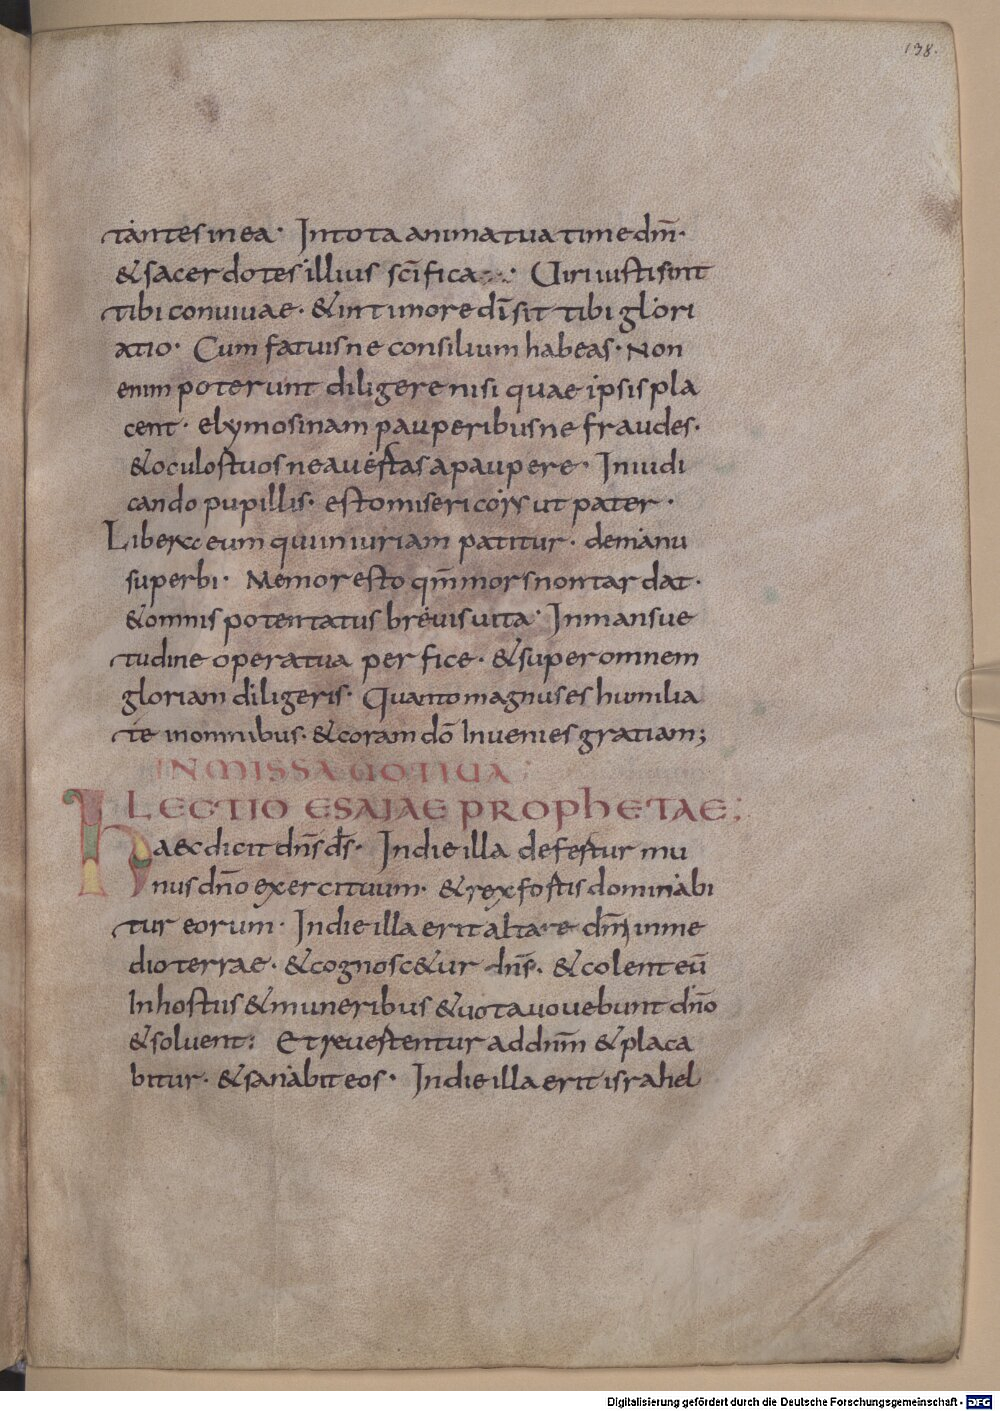 138.
tantes in ea· In tota anima tua time dm̄·
& sacerdotes illius sc̄ifica·:· Uiri iusti sint
tibi conuiuae· & in timore dī sit tibi glori
atio· Cum fatuis ne consilium habeas· Non
enim poterunt diligere nisi quae ipsis pla
cent· elymosinam pauperibus ne fraudes·
& oculos tuos ne auertas a paupere· In iudi
cando pupillis· esto misericors ut pater·
Libera eum qui iniuriam patitur· de manu
superbi· Memor esto qm̄ mors non tardat·
& omnis potentatus breuis uita· In mansue
tudine opera tua perfice· & super omnem
gloriam diligeris· Quanto magnus es humilia
te in omnibus· & coram dō Inuenies gratiam;
IN MISSA UOTIUA:
LECTIO ESAIAE PROPHETAE;
haec dicit dn̄s d̄s· In die illa defertur mu
nus dn̄o exercituum· & rex fostis dominabi
tur eorum· In die illa erit altare dn̄i in me
dio terrae· & cognosc&ur dn̄s· & colent eū
In hostiis & muneribus & uota uouebunt dn̄o
& soluent: Et reuertentur ad dnm̄ & placa
bitur· & sanabit eos· In die illa erit israhel
Digitalisierung gefördert durch die Deutsche Forschungsgemeinschaft - DFG